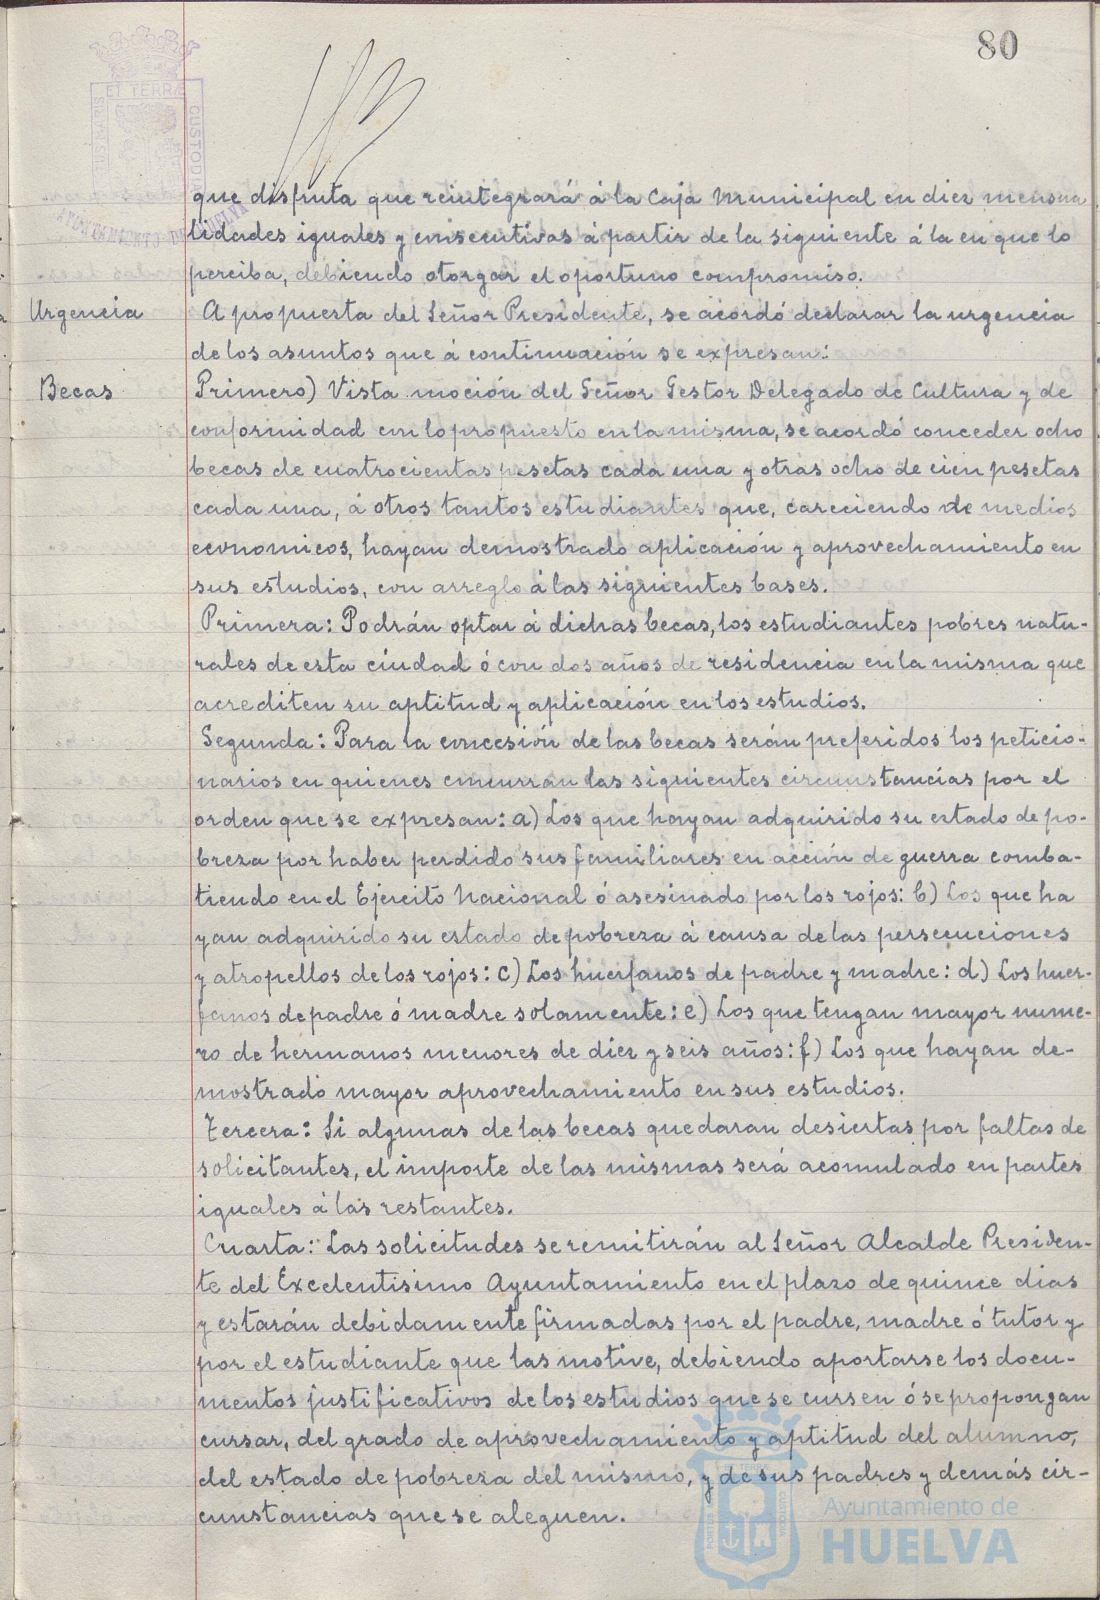 80
que disfruta que reintegrará á la Caja Municipal en diez mensua
lidades iguales y consecutivas á partir de la siguiente á la en que lo
perciba, debiendo otorgar el oportuno compromiso.
Urgencia
A propuesta del Señor Presidente, se acordó declarar la urgencia
de los asuntos que á continuación se expresan:
Becas
Primero) Vista moción del Señor Gestor Delegado de Cultura y de
conformidad con lo propuesto en la misma, se acordó conceder ocho
becas de cuatrocientas pesetas cada una y otras ocho de cien pesetas
cada una, á otros tantos estudiantes que, careciendo de medios
economicos, hayan demostrado aplicación y aprovechamiento en
sus estudios, con arreglo á las siguientes bases.
Primera: Podrán optar á dichas becas, los estudiantes pobres natu-
rales de esta ciudad ó con dos años de residencia en la misma que
acrediten su aptitud y aplicación en los estudios.
Segunda: Para la concesión de las becas serán preferidos los peticio-
narios en quienes concurran las siguientes circunstancias por el
orden que se expresan: a) Los que hayan adquirido su estado de po-
breza por haber perdido sus familiares en acción de guerra comba-
tiendo en el Ejercito Nacional ó asesinado por los rojos: b) Los que ha
yan adquirido su estado de pobreza á causa de las persecuciones
y atropellos de los rojos: c) Los huerfanos de padre y madre: d) Los huer-
fanos de padre ó madre solamente: e) Los que tengan mayor nume-
ro de hermanos menores de diez y seis años: f) Los que hayan de-
mostrado mayor aprovechamiento en sus estudios.
Tercera: Si algunas de las becas quedaran desiertas por faltas de
solicitantes, el importe de las mismas será acomulado en partes
iguales á las restantes.
Cuarta: Las solicitudes se remitirán al Señor Alcalde Presiden-
te del Excelentisimo Ayuntamiento en el plazo de quince dias
y estarán debidamente firmadas por el padre, madre ó tutor y
por el estudiante que las motive, debiendo aportarse los docu-
mentos justificativos de los estudios que se cursen ó se propongan
cursar, del grado de aprovechamiento y aptitud del alumno,
del estado de pobreza del mismo, y de sus padres y demás cir-
cunstancias que se aleguen.
Ayuntamiento de
HUELVA